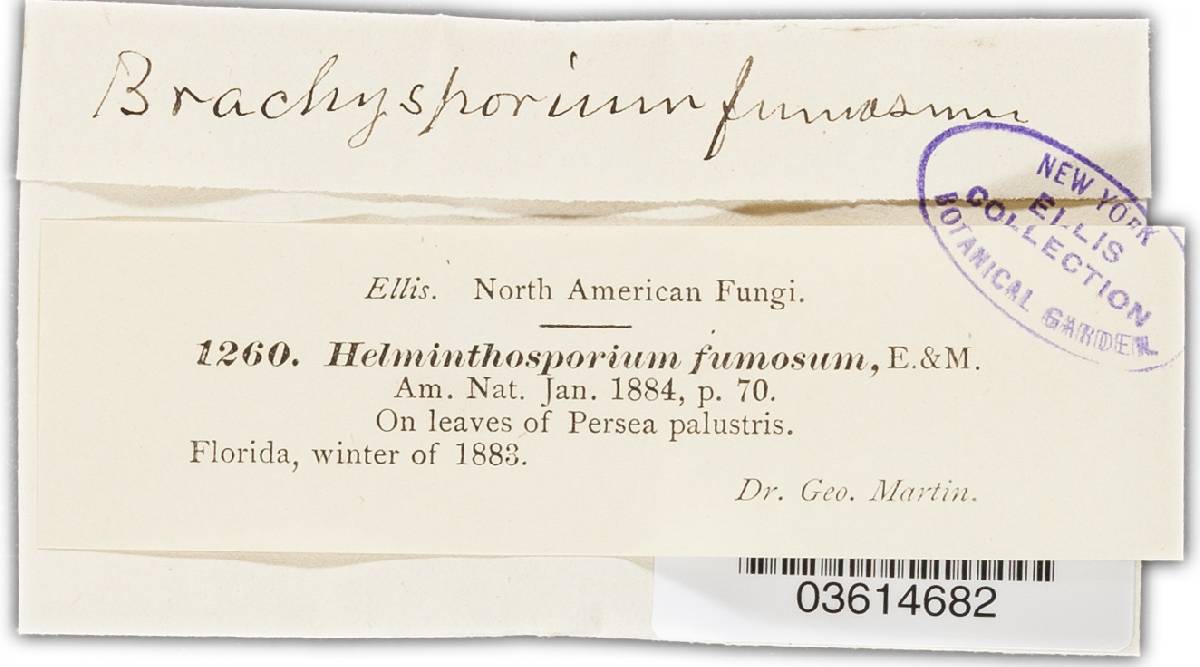 Brachysporium fumosum
NEW YORK
ELLIS
COLLECTION
BOTANICAL GARDEN
Ellis. North American Fungi.
1260. Helminthosporium fumosum, E.&M.
Am. Nat. Jan. 1884, p. 70.
On leaves of Persea palustris.
Florida, winter of 1883.
Dr. Geo. Martin.
03614682